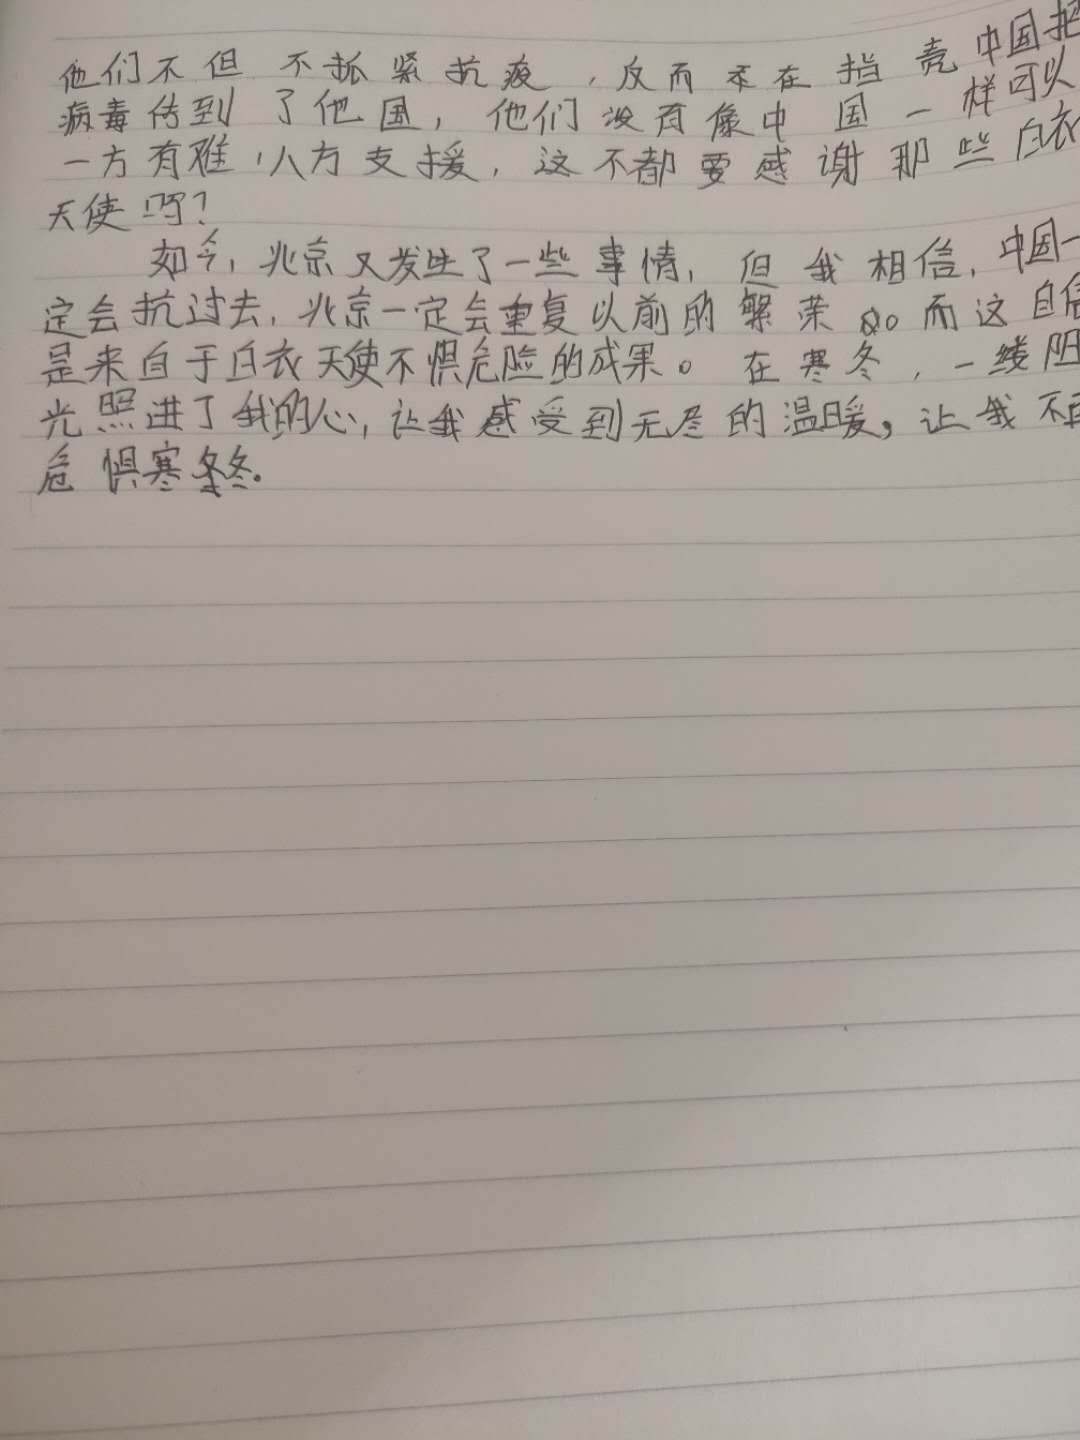 他们不但不抓紧抗疫，反而在指责中国把
病毒传到了他国，他们没有像中国一样可以
一方有难，八方支援，这不都要感谢那些白衣
天使吗？
如今，北京又发生了一些事情，但我相信，中国一
定会抗过去，北京一定会重复以前的繁荣。而这自信
是来自于白衣天使不惧危险的成果。在寒冬，一缕阳
光照进了我的心，让我感受到无尽的温暖，让我不再
危惧寒冬。